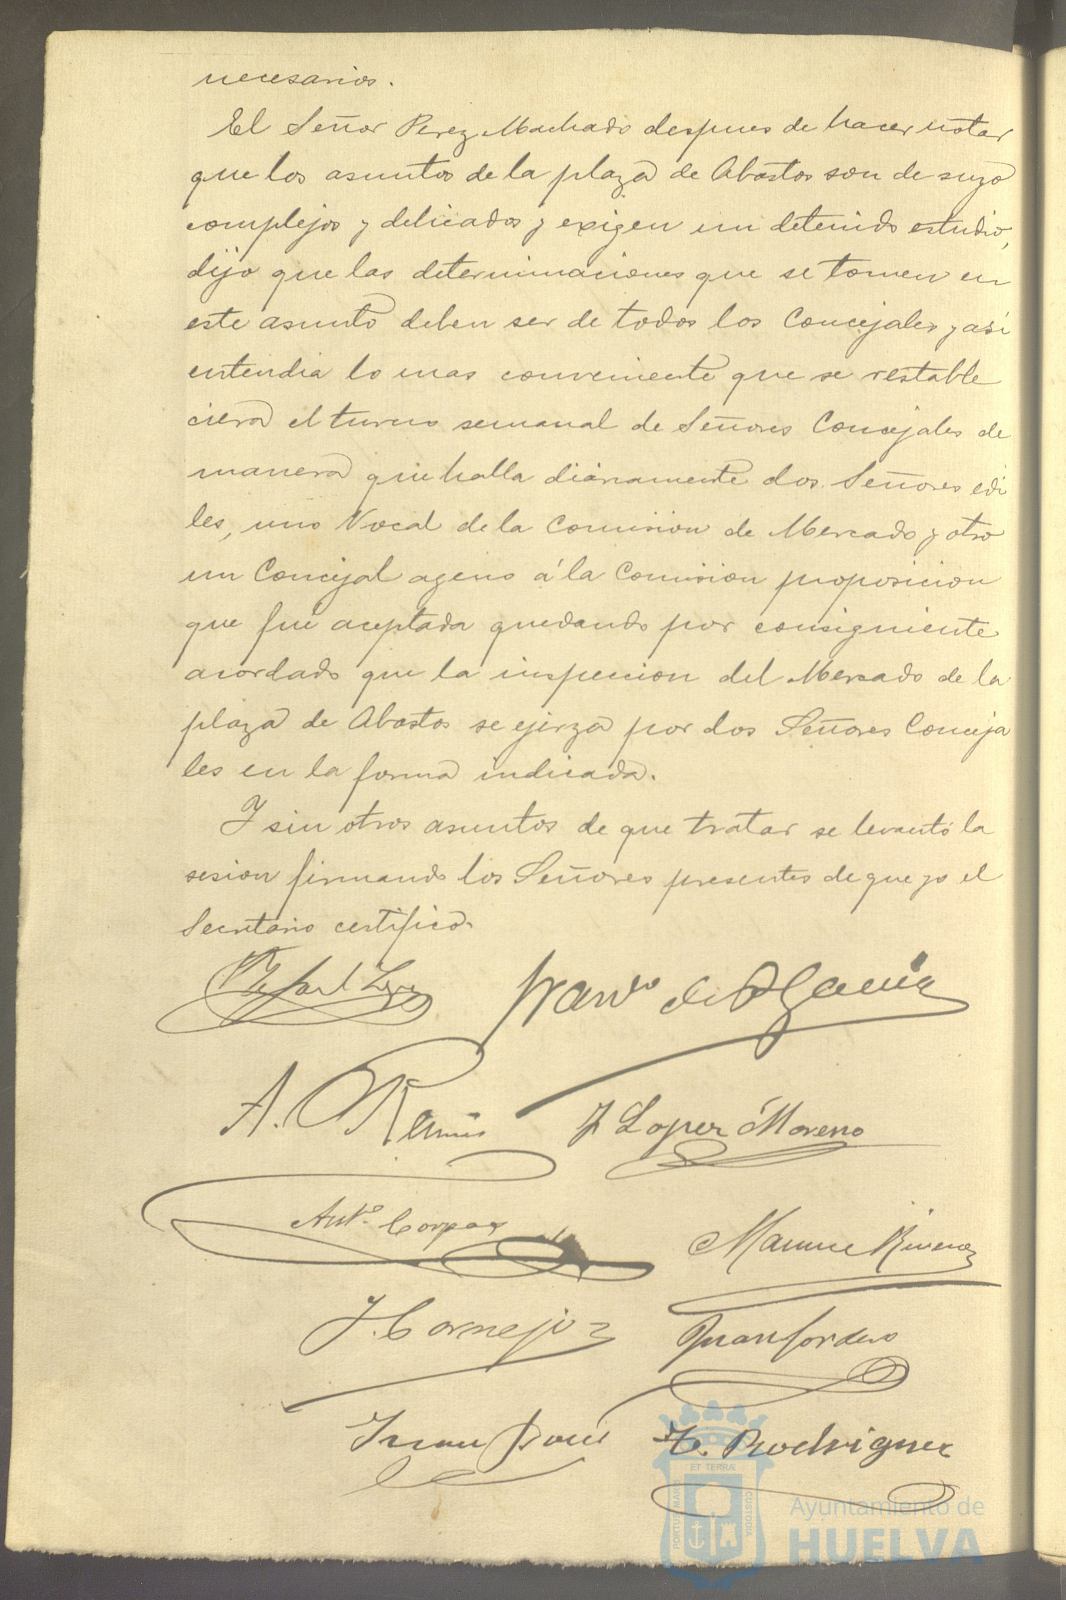 necesarios.
El Señor Perez Machado despues de hacer notar
que los asuntos de la plaza de Abastos son de suyo
complejos y delicados y exigen un detenido estudio,
dijo que las determinaciones que se tomen en
este asunto deben ser de todos los Concejales, y asi
entendia lo mas conveniente que se restable
ciera el turno semanal de Señores Concejales de
manera que halla diariamente dos Señores edi
les, uno Vocal de la Comision de Mercado y otro
un Concejal ageno á la Comision proposicion
que fué aceptada quedando por consiguiente
acordado que la inspeccion del Mercado de la
plaza de Abastos se ejerza por dos Señores Conceja
les en la forma indicada.
Y sin otros asuntos de que tratar se levantó la
sesion firmando los Señores presentes de que yo el
Secretario certifico.
Franco de
A.
J Lopez Moreno
Anto. Corpas
J. Cornejo
Juan Cordero
Juan
Rodriguez
PORTUS MARIS
ET TERRÆ
CUSTODIA
Ayuntamiento de
HUELVA